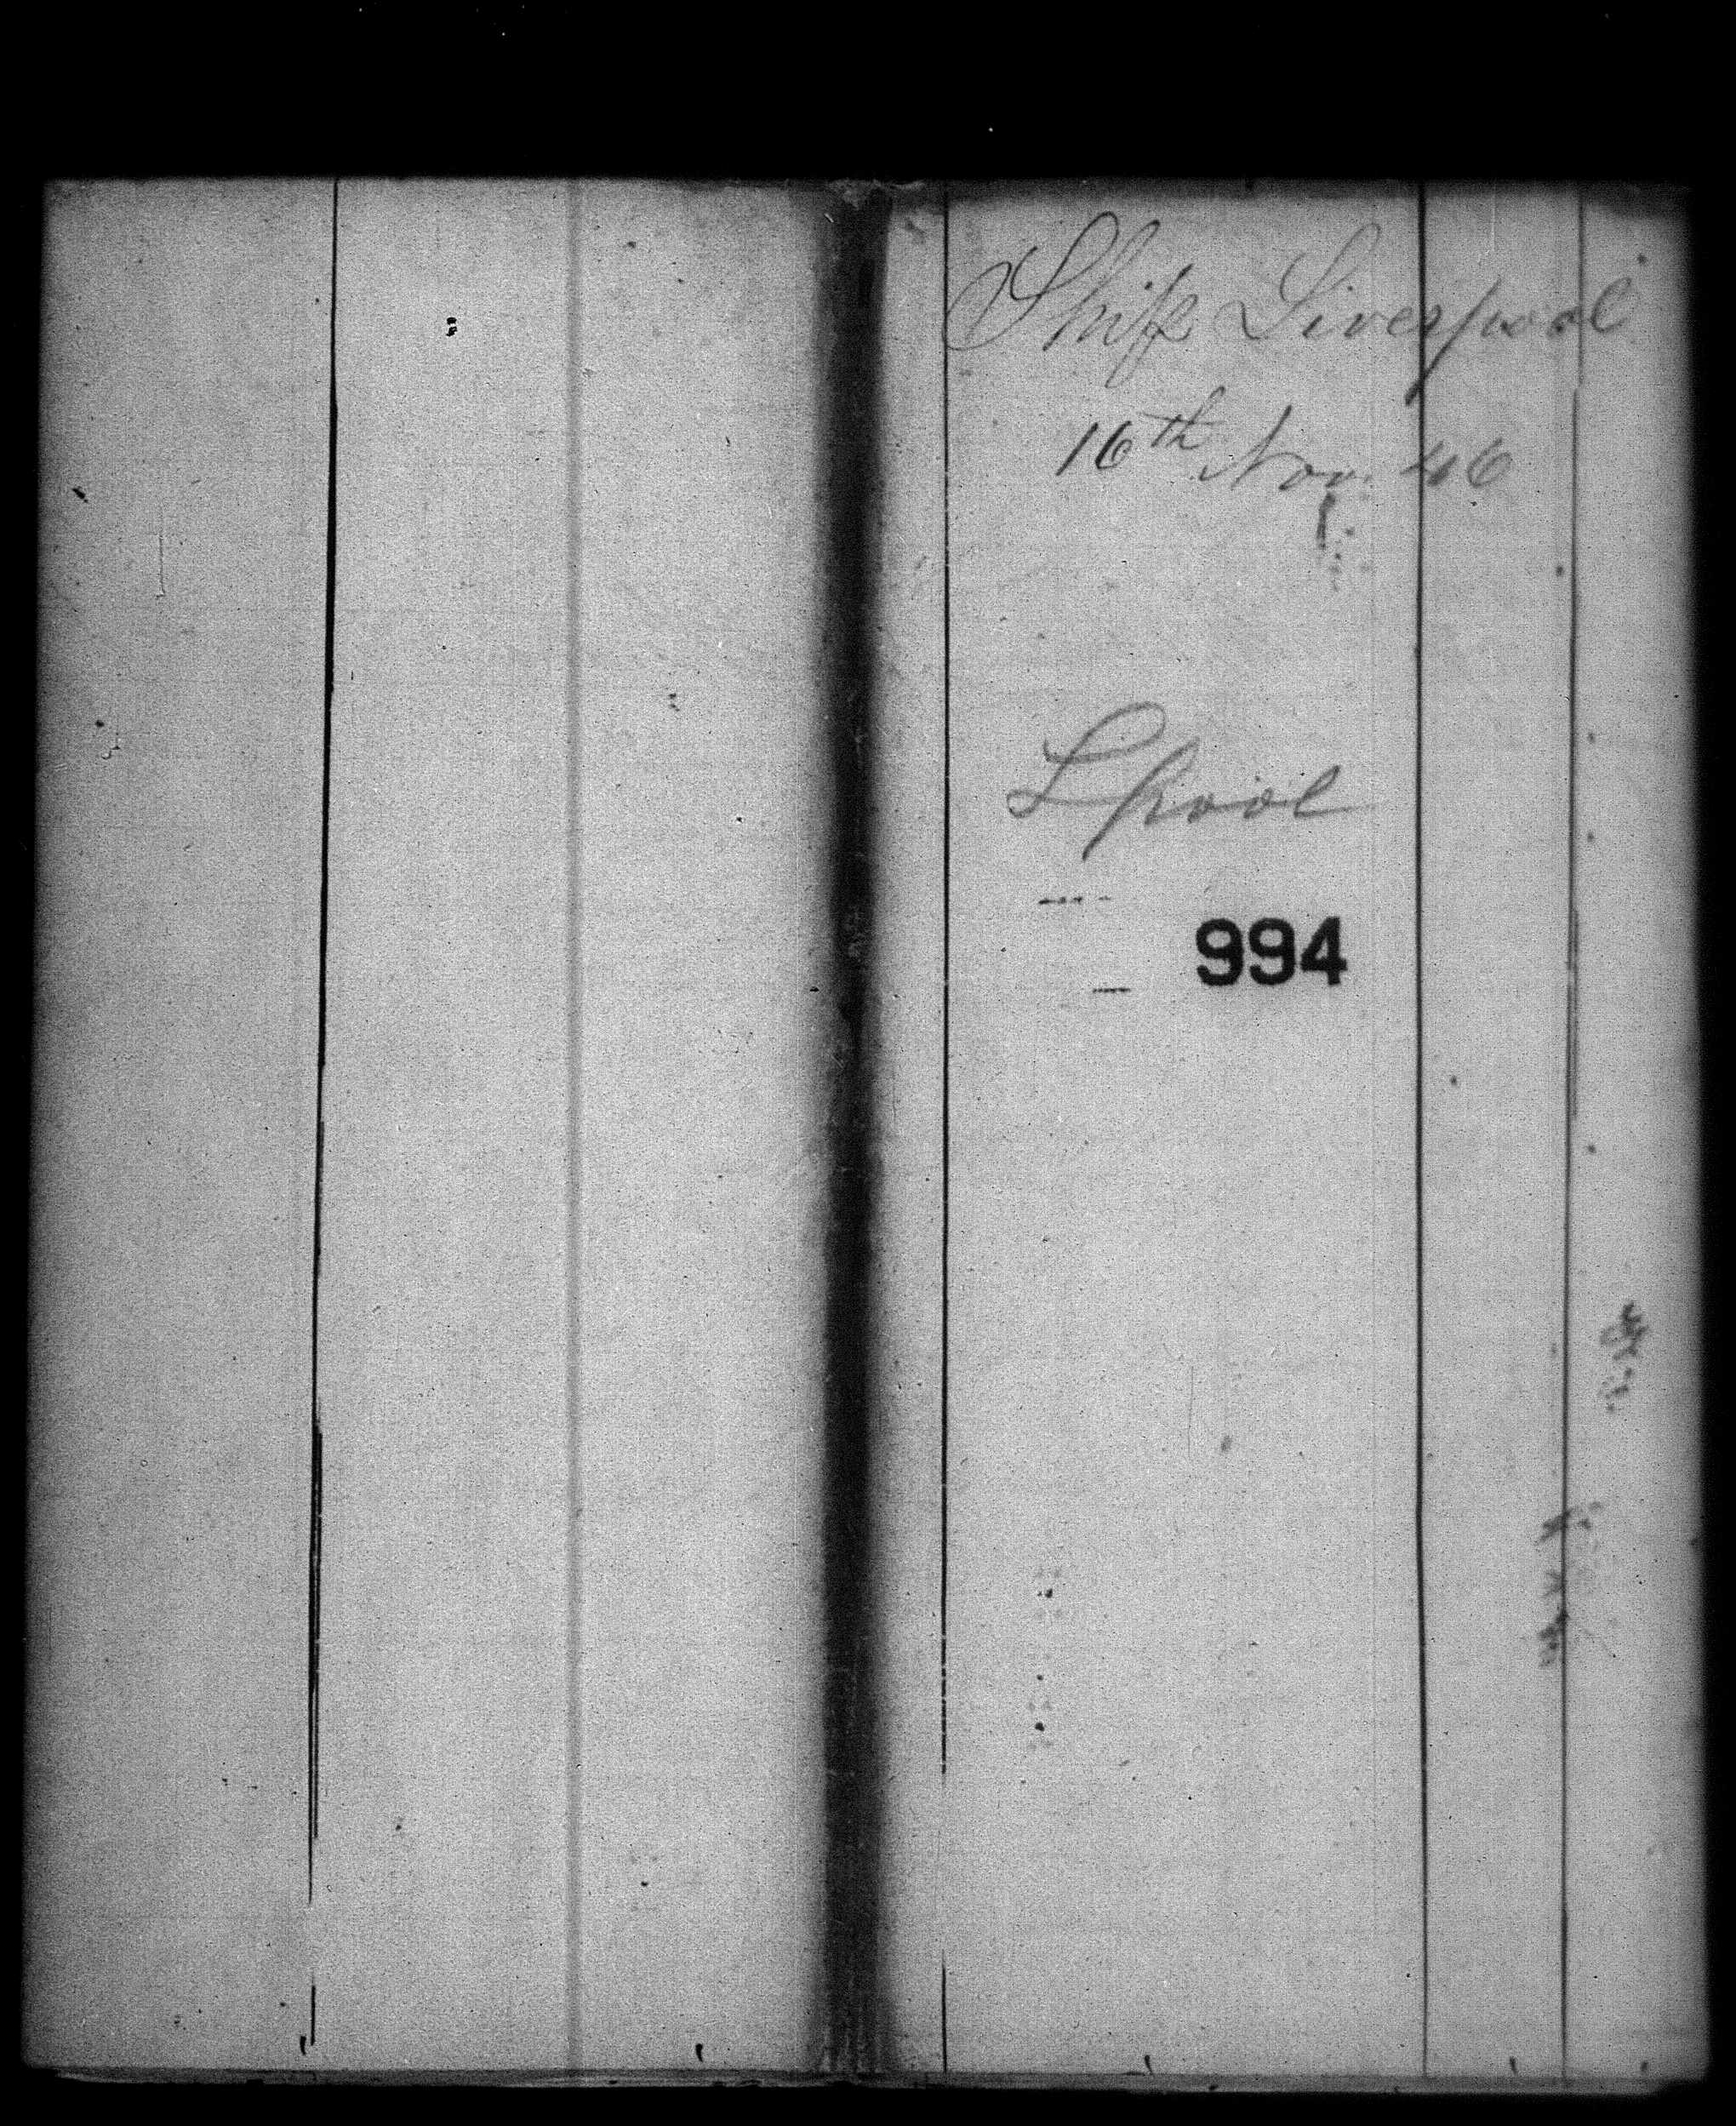 Ship Liverpool
16th Nov. 46
Lpool
994